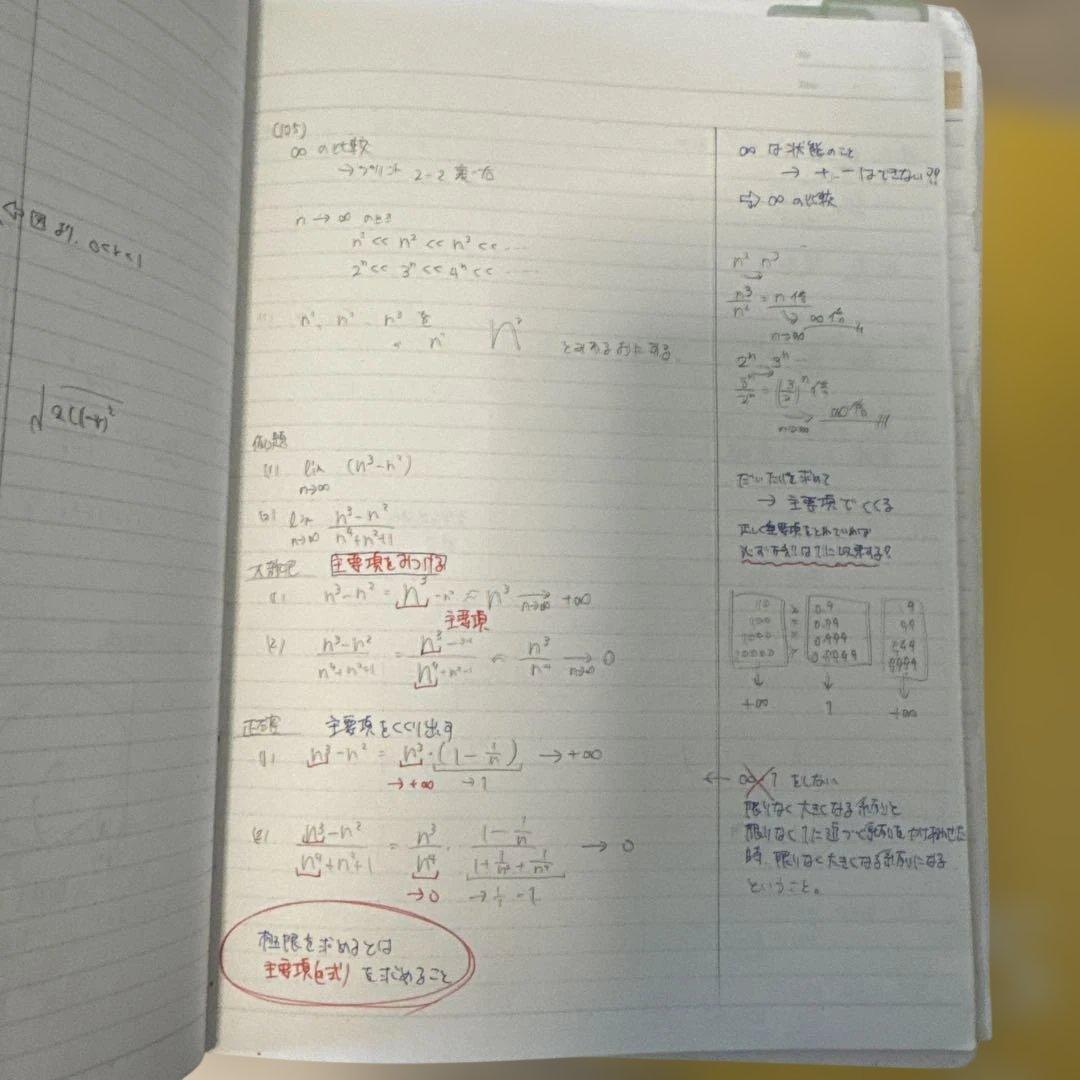 ⇦ 図より、0<r<1
(105)
∞の比較
→プリント 2-2 裏-右
n→∞ のとき
n¹ << n² << n³ << ……
2ⁿ << 3ⁿ << 4ⁿ << ……
n¹, n², n³ を
とみえるようにする
例題
(1) lim n→∞ (n³-n²)
(2) lim n→∞ (n³-n²)/(n⁴+n²+1)
大雑把 主要項をみつける
(1) n³-n² = n³-n² ≈ n³ →(n→∞) +∞
主要項
(2) (n³-n²)/(n⁴+n²+1) = n³-n²/n⁴+n²+1 ≈ n³/n⁴ →(n→∞) 0
正確 主要項をくくり出す
(1) n³-n² = n³・(1-1/n) → +∞
→+∞ →1
(2) (n³-n²)/(n⁴+n²+1) = n³/n⁴ ・ (1-1/n)/(1+1/n²+1/n⁴) → 0
→0 →1/1=1
極限を求めるとは
主要項(等式)を求めること
∞は状態のこと
→ +, -はできない??
⇨ ∞の比較
n² n³
n³/n² = n倍
n→∞ ∞倍
2ⁿ 3ⁿ
3ⁿ/2ⁿ = (3/2)ⁿ倍
n→∞ ∞倍
だいたいを求めて
→ 主要項でくくる
正しく主要項をとれていれば
必ず残りは1に収束する?
10 × 0.9 9
100 × 0.99 99
1000 × 0.999 999
10000 × 0.9999 9999
↓ ↓ ↓
+∞ 1 +∞
← ∞×1 をしない
限りなく大きくなる系列と
限りなく1に近づく系列をかけあわせた
時、限りなく大きくなる系列になる
ということ。